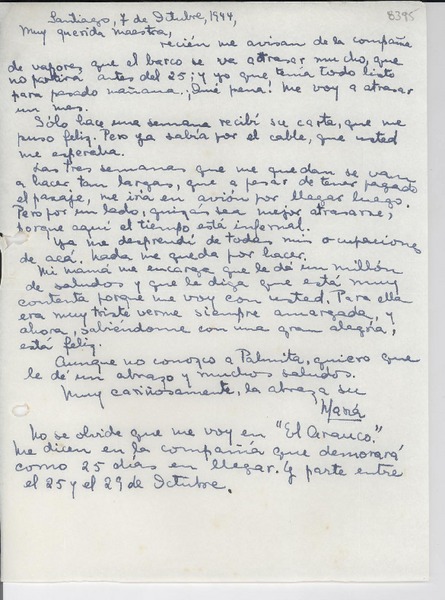 8395
Santiago, 7 de Octubre, 1944,
Muy querida maestra,
recién me avisan de la compañía
de vapores que el barco se va atrasar mucho, que
no partirá antes del 25; y yo que tenía todo listo
para pasado mañana. ¡Qué pena! Me voy a atrasar
un mes.
Sólo hace una semana recibí su carta, que me
puso feliz. Pero ya sabía por el cable, que usted
me esperaba.
Las tres semanas que me quedan se van
a hacer tan largas, que a pesar de tener pagado
el pasaje, me iría en avión por llegar luego.
Pero por un lado, quizás sea mejor atrasarme,
porque aquí el tiempo está infernal.
Ya me desprendí de todas mis ocupaciones
de acá. Nada me queda por hacer.
Mi mamá me encarga que le dé un millón
de saludos y que le diga que está muy
contenta porque me voy con usted. Para ella
era muy triste verme siempre amargada, y
ahora, sabiéndome con una gran alegría,
está feliz.
Aunque no conozco a Palmita, quiero que
le dé un abrazo y muchos saludos.
Muy cariñosamente, la abraza su
No se olvide que me voy en "El Arauco."
Me dicen en la compañía que demorará
como 25 días en llegar. Y parte entre
el 25 y el 29 de Octubre.